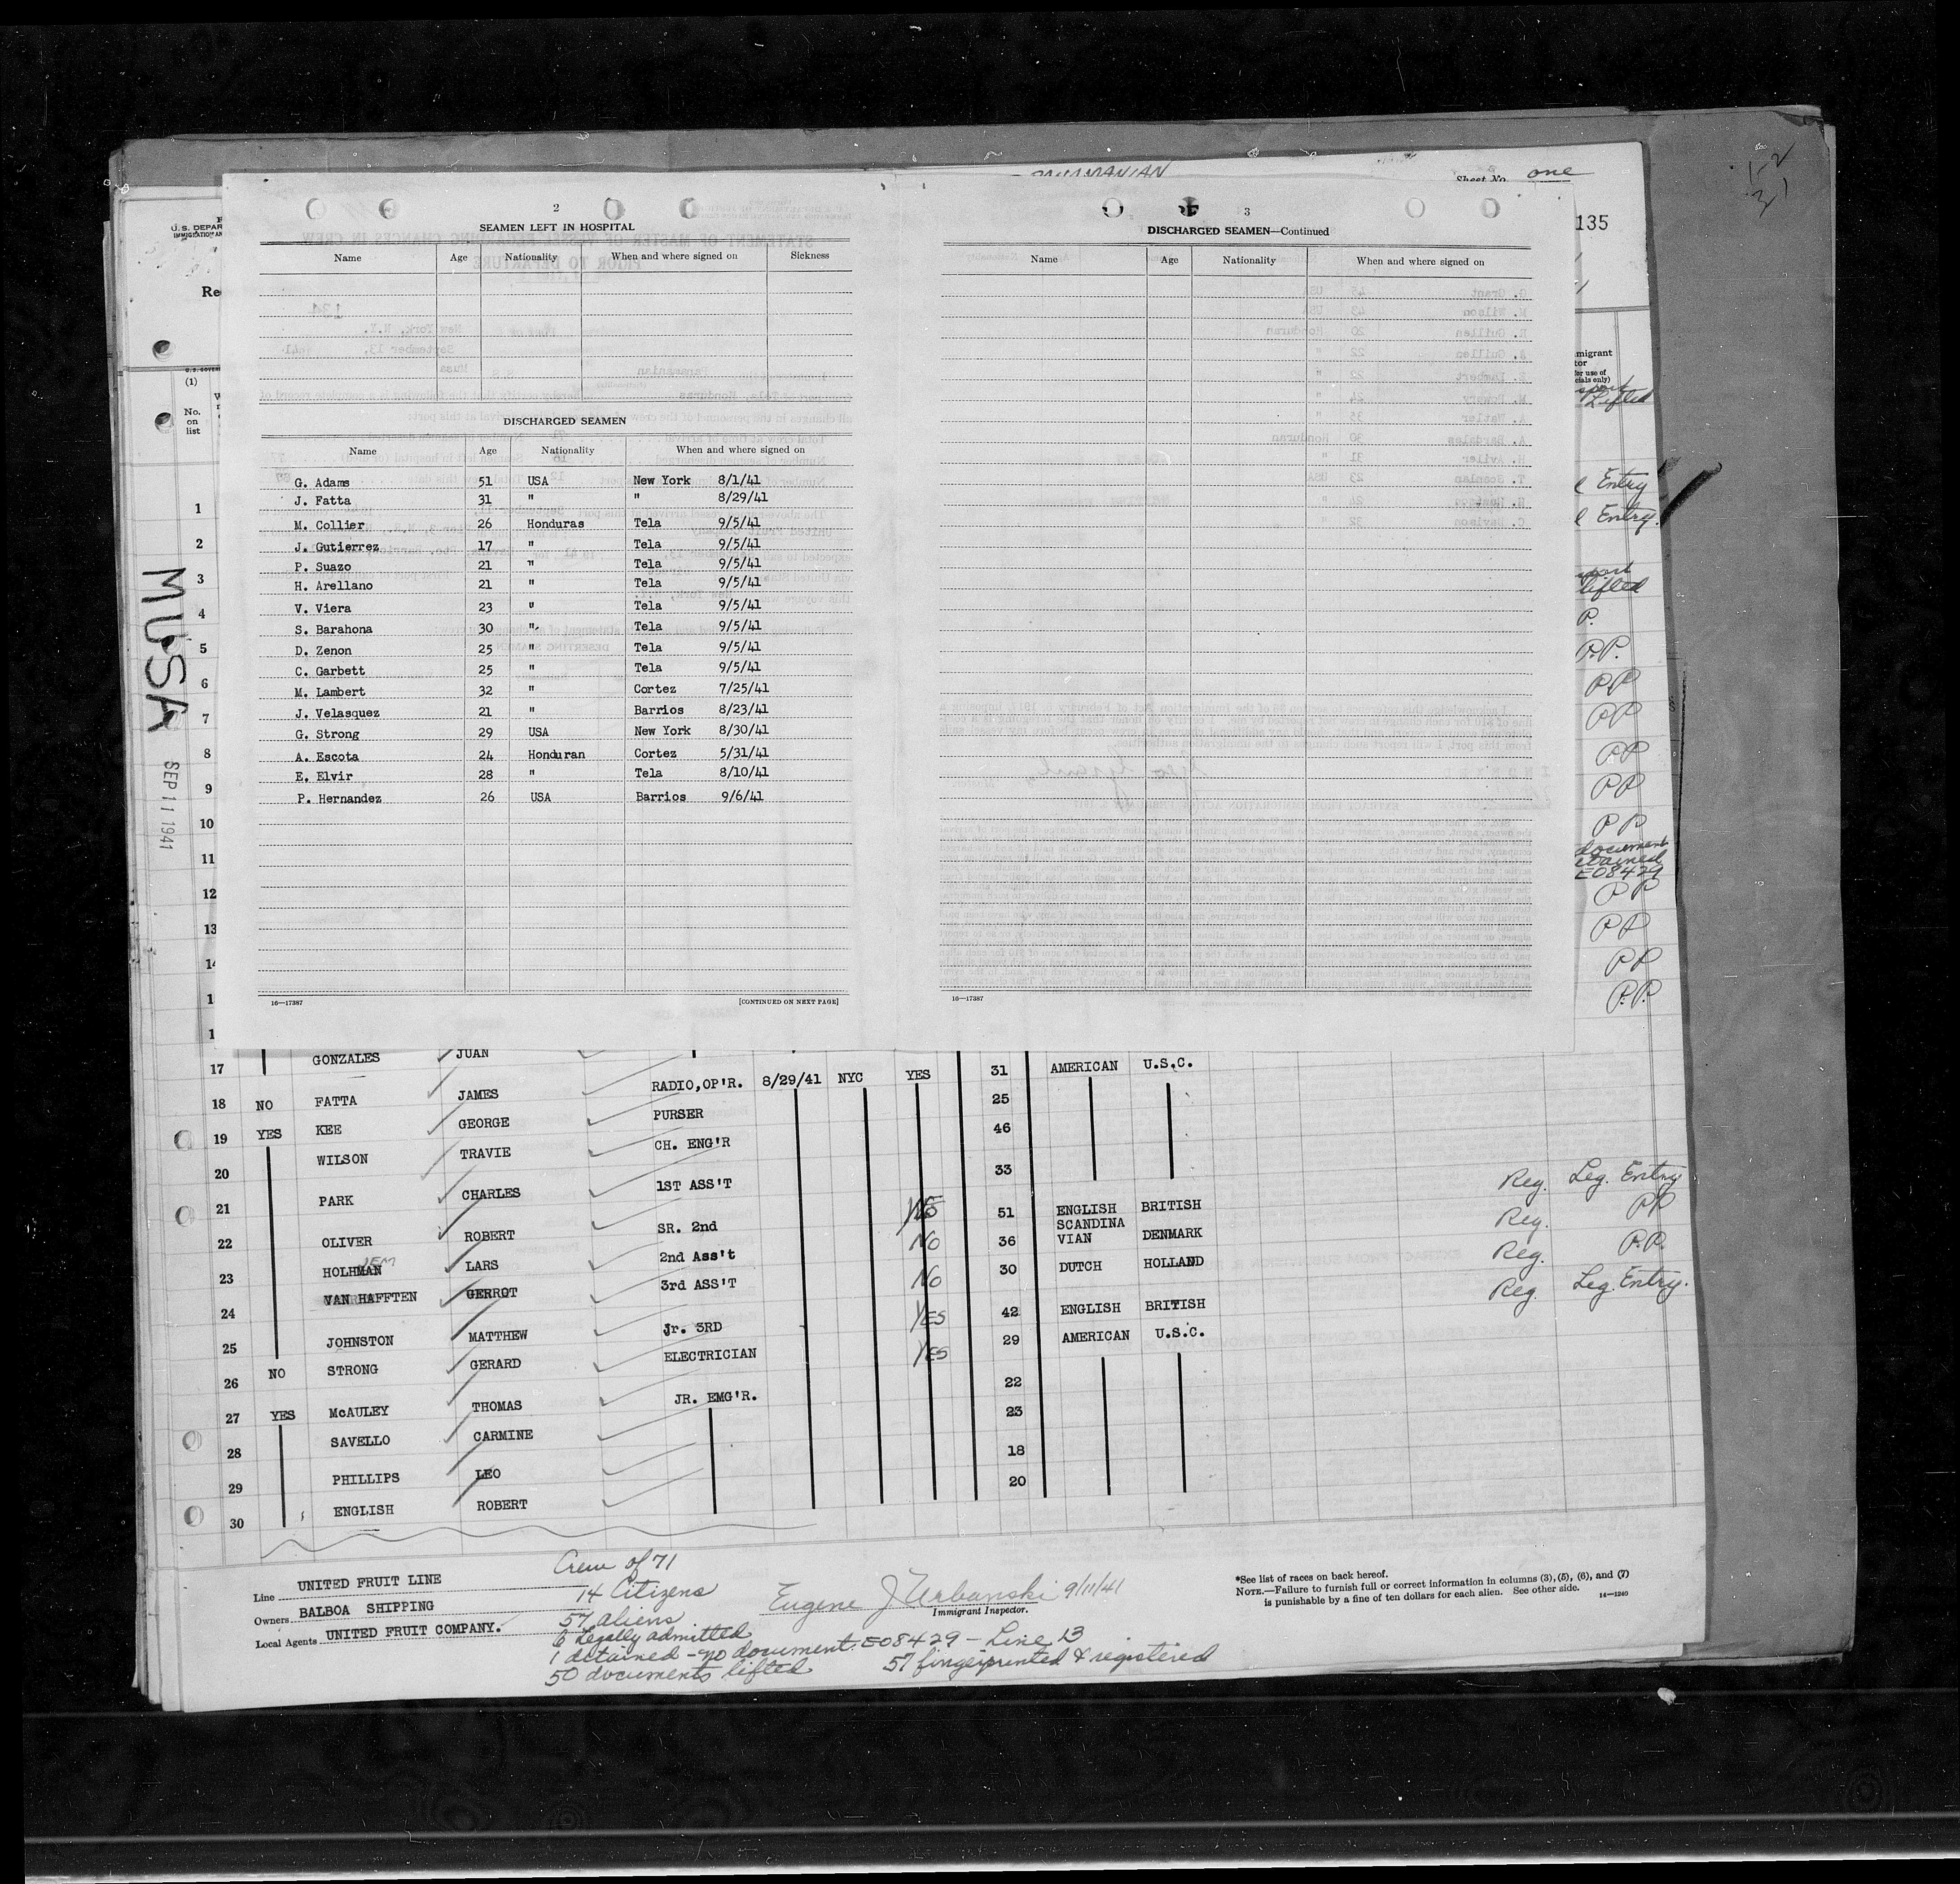 PANAMANIAN
Sheet No. one
1-2
3 1
135
2
SEAMEN LEFT IN HOSPITAL
Name Age Nationality When and where signed on Sickness
DISCHARGED SEAMEN
Name Age Nationality When and where signed on
G. Adams 51 USA New York 8/1/41
J. Fatta 31 " " 8/29/41
M. Collier 26 Honduras Tela 9/5/41
J. Gutierrez 17 " Tela 9/5/41
P. Suazo 21 " Tela 9/5/41
H. Arellano 21 " Tela 9/5/41
V. Viera 23 " Tela 9/5/41
S. Barahona 30 " Tela 9/5/41
D. Zenon 25 " Tela 9/5/41
C. Garbett 25 " Tela 9/5/41
M. Lambert 32 " Cortez 7/25/41
J. Velasquez 21 " Barrios 8/23/41
G. Strong 29 USA New York 8/30/41
A. Escota 24 Honduran Cortez 5/31/41
E. Elvir 28 " Tela 8/10/41
P. Hernandez 26 USA Barrios 9/6/41
16—17387 [CONTINUED ON NEXT PAGE]
3
DISCHARGED SEAMEN—Continued
Name Age Nationality When and where signed on
16—17387
U.S. DEPAR
IMMIGRATION AN
Re
(1)
No.
on
list
MUSA
SEP 11 1941
1
2
3
4
5
6
7
8
9
10
11
12
13
14
1
1
migrant
tor
er use of
cials only)
port
Lifted
l Entry
l Entry.
port
lifted
P.
P.P.
PP
PP
PP
PP
PP
document
etained
E08429
PP
PP
PP
P.P.
17 GONZALES JUAN
18 NO FATTA JAMES RADIO,OP'R. 8/29/41 NYC YES 31 AMERICAN U.S.C.
19 YES KEE GEORGE PURSER 25
20 WILSON TRAVIE CH. ENG'R 46
21 PARK CHARLES 1ST ASS'T 33
22 OLIVER ROBERT SR. 2nd 51 ENGLISH BRITISH Reg. Leg. Entry
23 HOLHMAN LARS 2nd Ass't No 36 SCANDINA VIAN DENMARK Reg. PP
24 VAN HAFFTEN GERROT 3rd ASS'T No 30 DUTCH HOLLAND Reg. P.P.
25 JOHNSTON MATTHEW Jr. 3RD YES 42 ENGLISH BRITISH Reg. Leg. Entry.
26 NO STRONG GERARD ELECTRICIAN YES 29 AMERICAN U.S.C.
27 YES McAULEY THOMAS JR. EMG'R. 22
28 SAVELLO CARMINE 23
29 PHILLIPS LEO 18
30 ENGLISH ROBERT 20
Line UNITED FRUIT LINE
Owners BALBOA SHIPPING
Local Agents UNITED FRUIT COMPANY.
Crew of 71
14 Citizens
57 aliens
6 Legally admitted
1 detained - no document. E08429 - Line 13
50 documents lifted 57 fingerprinted & registered
Eugene J Urbanski 9/11/41
Immigrant Inspector.
*See list of races on back hereof.
NOTE.—Failure to furnish full or correct information in columns (3), (5), (6), and (7)
is punishable by a fine of ten dollars for each alien. See other side. 14—1240